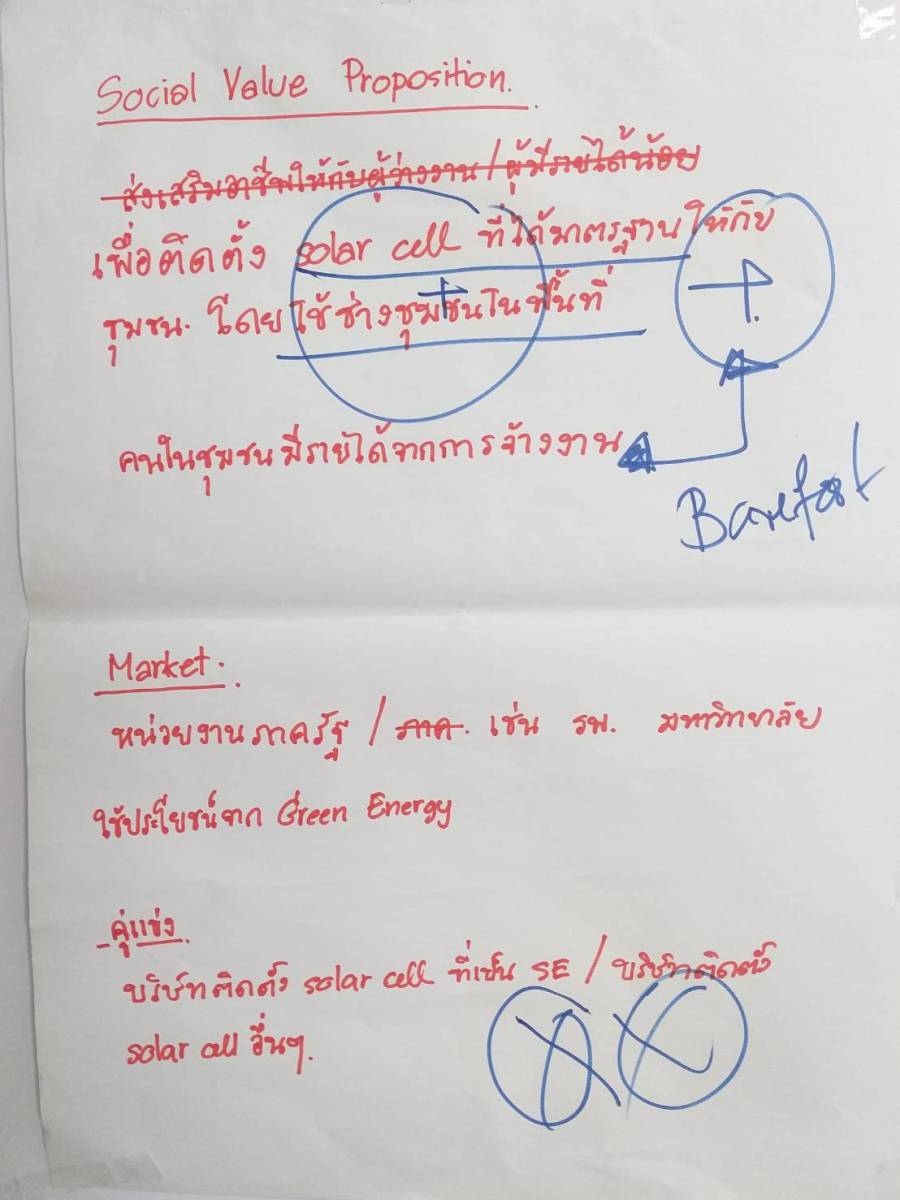 Social Value Proposition.
ส่งเสริมอาชีพให้กับผู้ว่างงาน/ผู้มีรายได้น้อย
เพื่อติดตั้ง solar cell ที่ได้มาตรฐานให้กับ
ชุมชน. โดยใช้ช่างชุมชนในพื้นที่
คนในชุมชนมีรายได้จากการจ้างงาน
Barefoot
Market.
หน่วยงานภาครัฐ / ภาค. เช่น รพ. มหาวิทยาลัย
ใช้ประโยชน์จาก Green Energy
คู่แข่ง
บริษัทติดตั้ง solar cell ที่เป็น SE / บริษัทติดตั้ง
solar cell อื่นๆ.